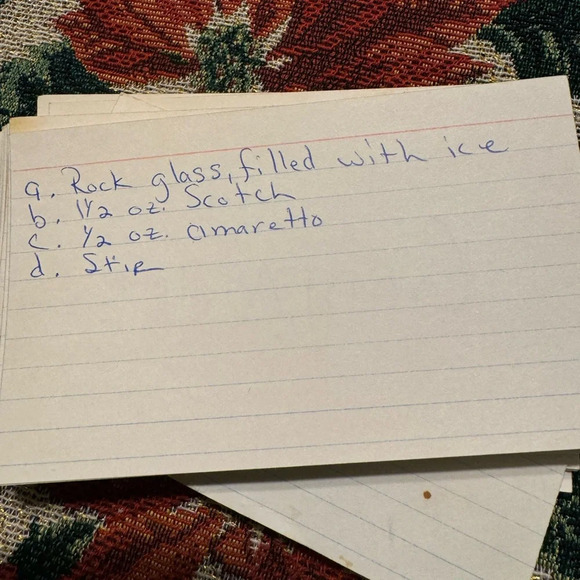 a. Rock glass, filled with ice
b. 1 1/2 oz. Scotch
c. 1/2 oz. amaretto
d. Stir